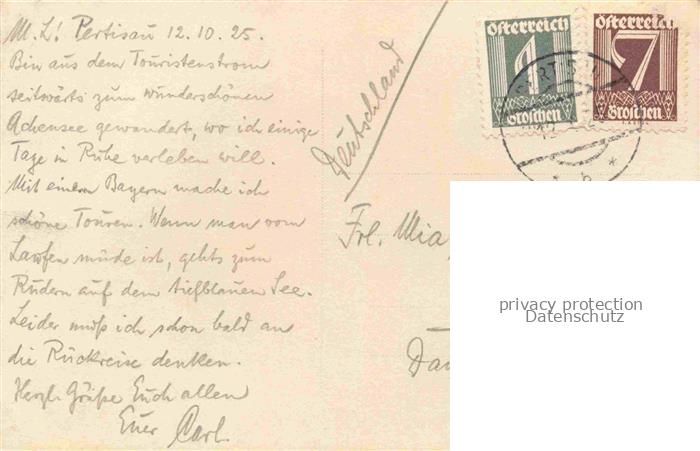 M. L! Pertisau 12.10.25.
Bin aus dem Touristenstrom
seitwärts zum wunderschönen
Achensee gewandert, wo ich einige
Tage in Ruhe verleben will.
Mit einem Bayern mache ich
schöne Touren. Wenn man vom
Laufen müde ist, gehts zum
Rudern auf dem tiefblauen See.
Leider muß ich schon bald an
die Rückreise denken.
Herzl. Grüße Euch allen
Euer Carl.
Deutschland
Österreich
1
Groschen
Österreich
7
Groschen
* b *
Frl. Mia
privacy protection
Datenschutz